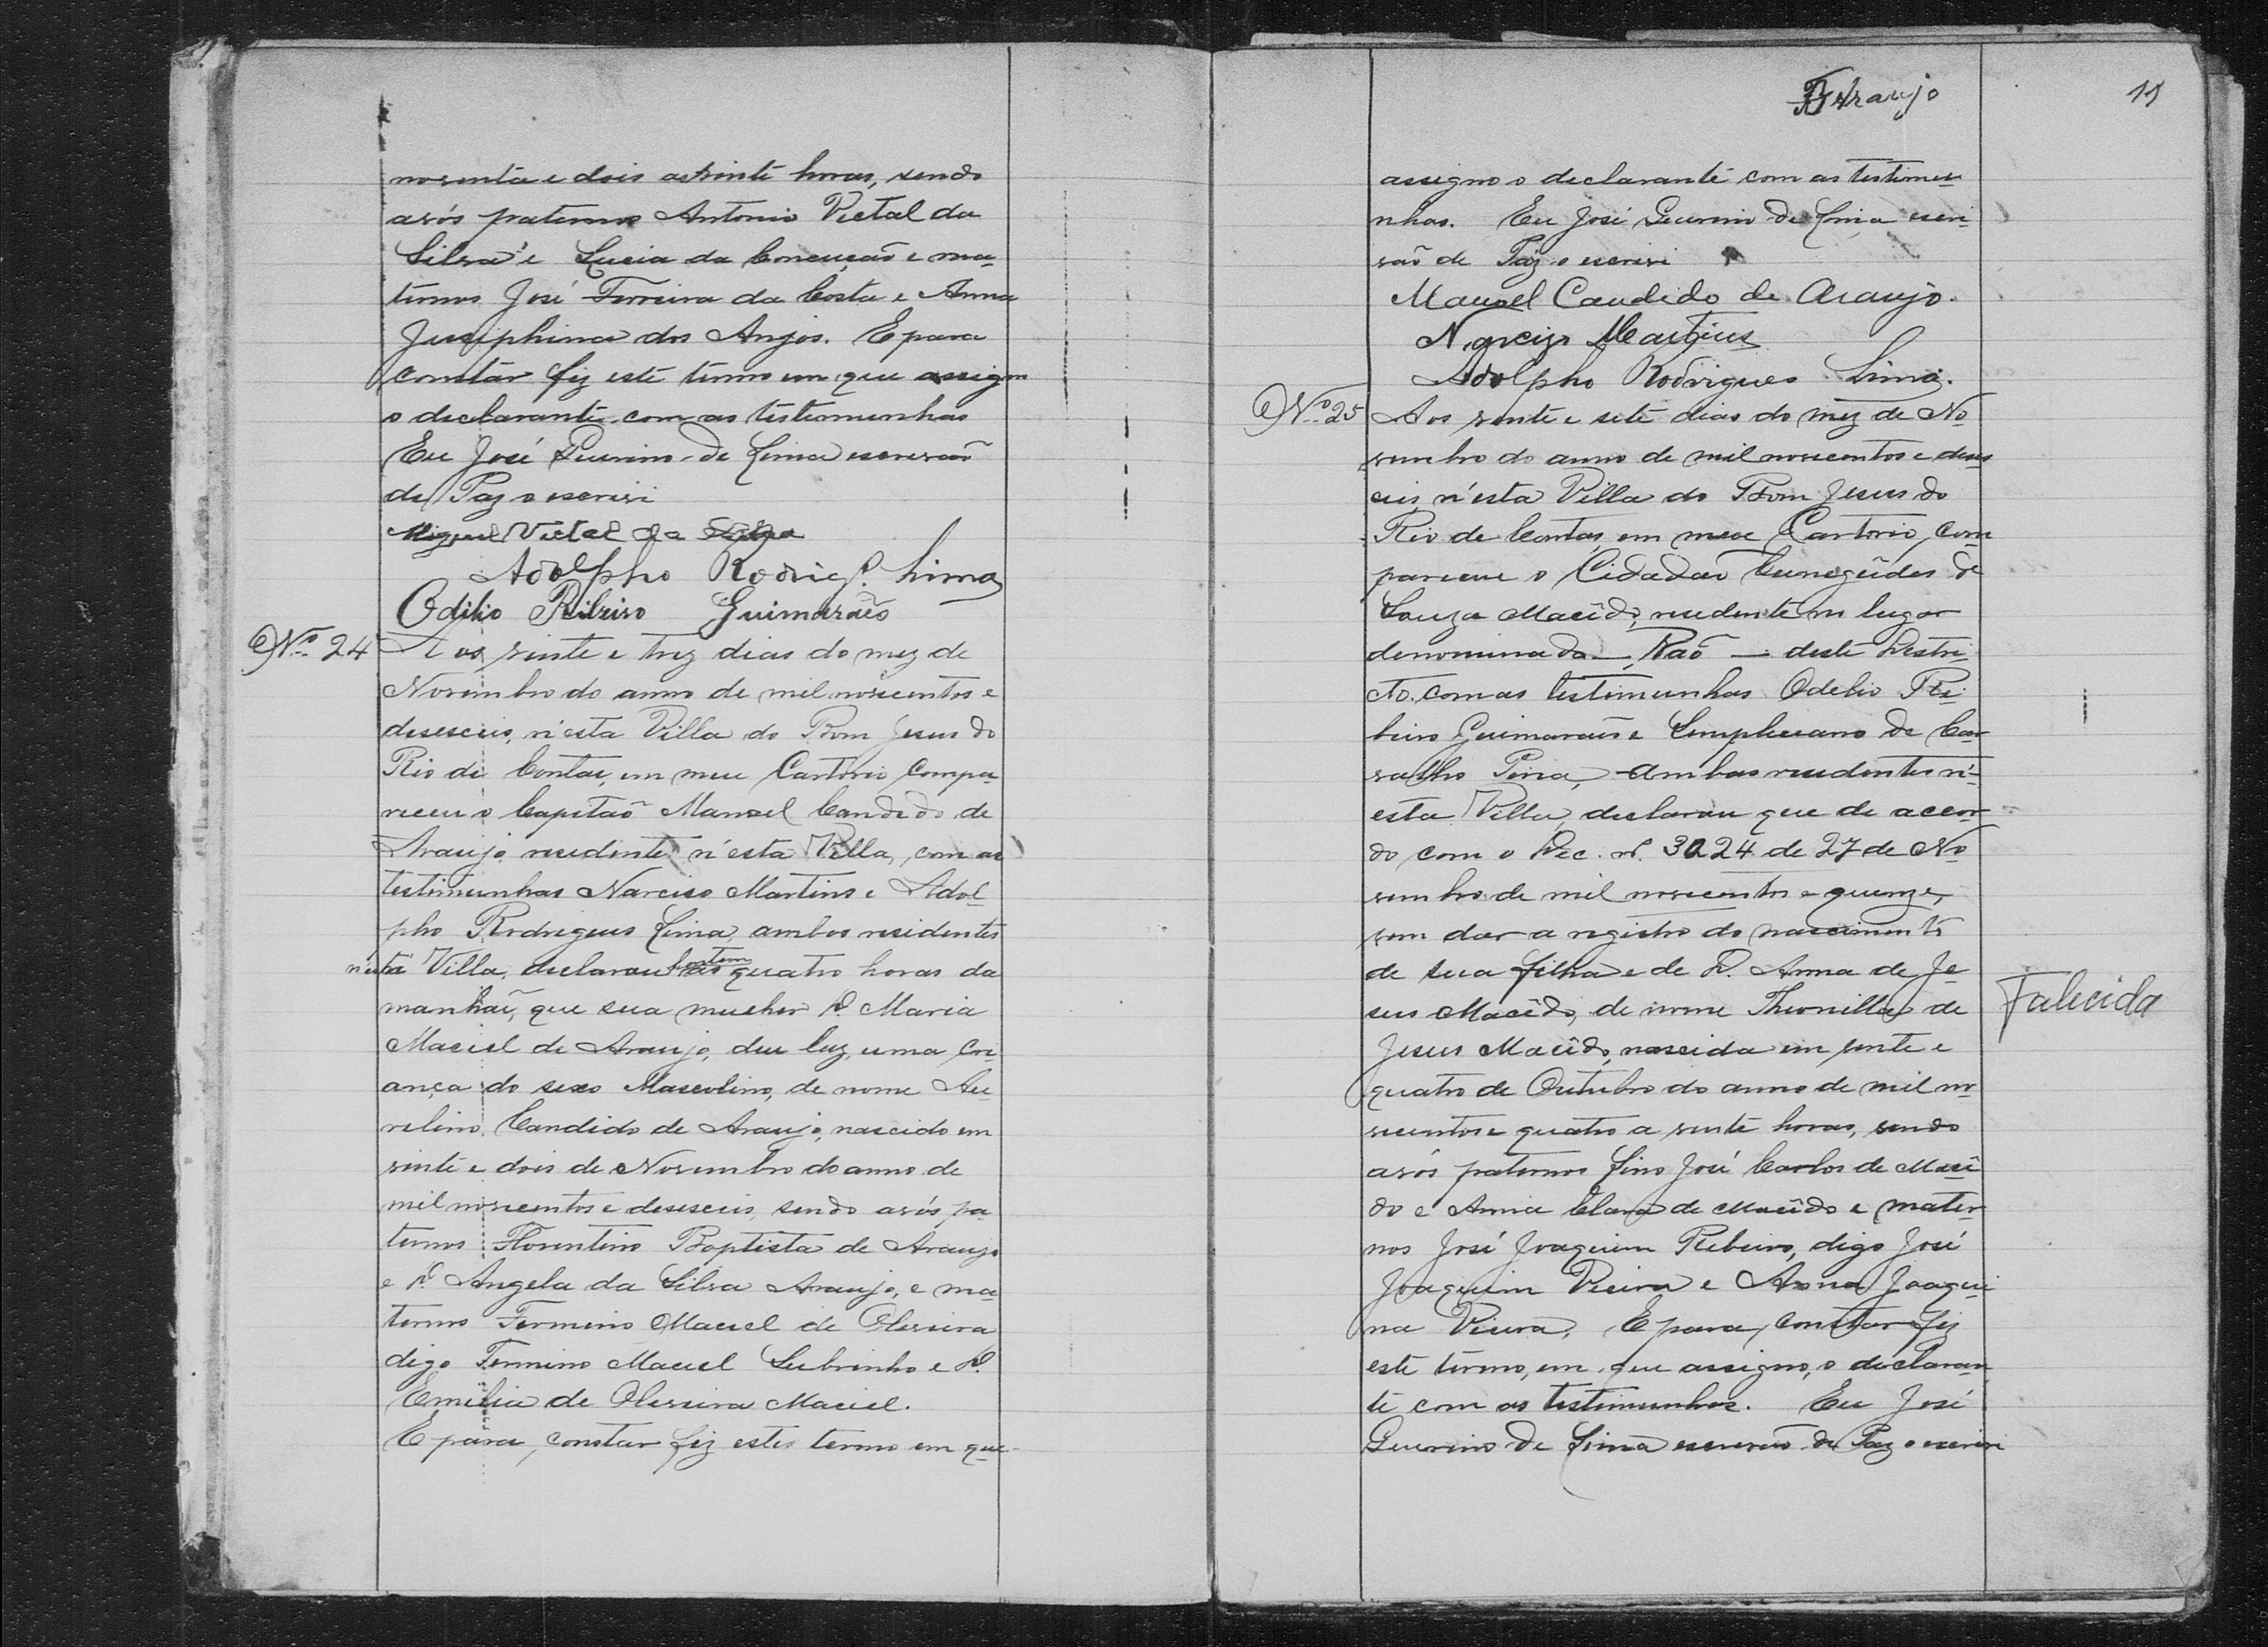 noventa e dois as vinte horas, sendo
avós paternos Antonio Victal da
Silva e Lucia da Conceição e ma-
ternos José Ferreira da Costa e Anna
Jusiphina dos Anjos. E para
constar fiz este termo em que assigno
o declarante com as testemunhas
Eu José Guerino de Lima escrivão
de Paz o escrivi
Miguel Victal da Silva
Adolpho Rodrigs. Lima
Odilio Ribeiro Guimarães
Nº 24 Aos vinte e trez dias do mez de
Novembro do anno de mil novecentos e
deseseis, n'esta Villa do Bom Jesus do
Rio de Contas, em meu Cartorio, compa-
receu o Capitão Manoel Candido de
Araujo residente n'esta Villa, com as
testimunhas Narciso Martins e Adol-
pho Rodrigues Lima, ambos residentes
n'esta Villa, declarou hontem as quatro horas da
manhaã, que sua mulher D. Maria
Maciel de Araujo, deu luz, uma cri-
ança do sexo Mascolino, de nome Au-
relino Candido de Araujo, nascido em
vinte e dois de Novembro do anno de
mil novecentos e deseseis, sendo avós pa-
ternos Florentino Baptista de Araujo
e D. Angela da Silva Araujo, e ma-
ternos Fermino Maciel de Oliveira
digo Fermino Maciel Subrinho e D.
Emilia de Oliveira Maciel.
E para constar fiz este termo em que
Araujo
11
assigno o declarante com as testimu-
nhas. Eu José Guerino de Lima escri-
vão de Paz o escrivi
Manoel Candido de Araujo.
Narcizo Martins
Adolpho Rodrigues Lima.
Nº 25 Aos vinte e sete dias do mez de No-
vembro do anno de mil novecentos e dese-
seis, n'esta Villa do Bom Jesus do
Rio de Contas, em meu Cartorio, com-
pareceu o Cidadão Cunegûdes de
Souza Macêdo, residente no lugar
denominado — — deste Destri-
cto. com as testimunhas Odelio Ri-
beiro Guimarães e Simpliciano de Car-
valho Pina, ambos residentes n'-
esta Villa, declarou que de accor-
do com o Dec. nº. 3024 de 27 de No-
vembro de mil novecentos e quinze,
vem dar a registro do nascimento
de sua filha e de D. Anna de Je-
sus Macêdo, de nome Theonilla de
Jesus Macêdo, nascida em vinte e
quatro de Outubro do anno de mil no-
vecentos e quatro a vinte horas, sendo
avós paternos Lino José Carlos de Macê-
do e Anna Clara de Macêdo e mater-
nos José Joaquim Ribeiro, digo José
Joaquim Vieira e Anna Joaqui-
na Vieira. E para constar fiz
este termo, em que assigno, o declaran-
te com as testimunhas. Eu José
Guerino de Lima escrivão de Paz o escrivi
Falecida